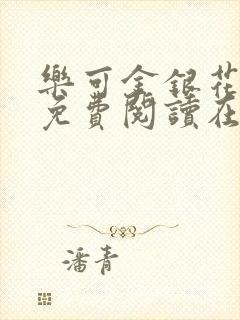 樂可金銀花
免費閱讀在
潘青